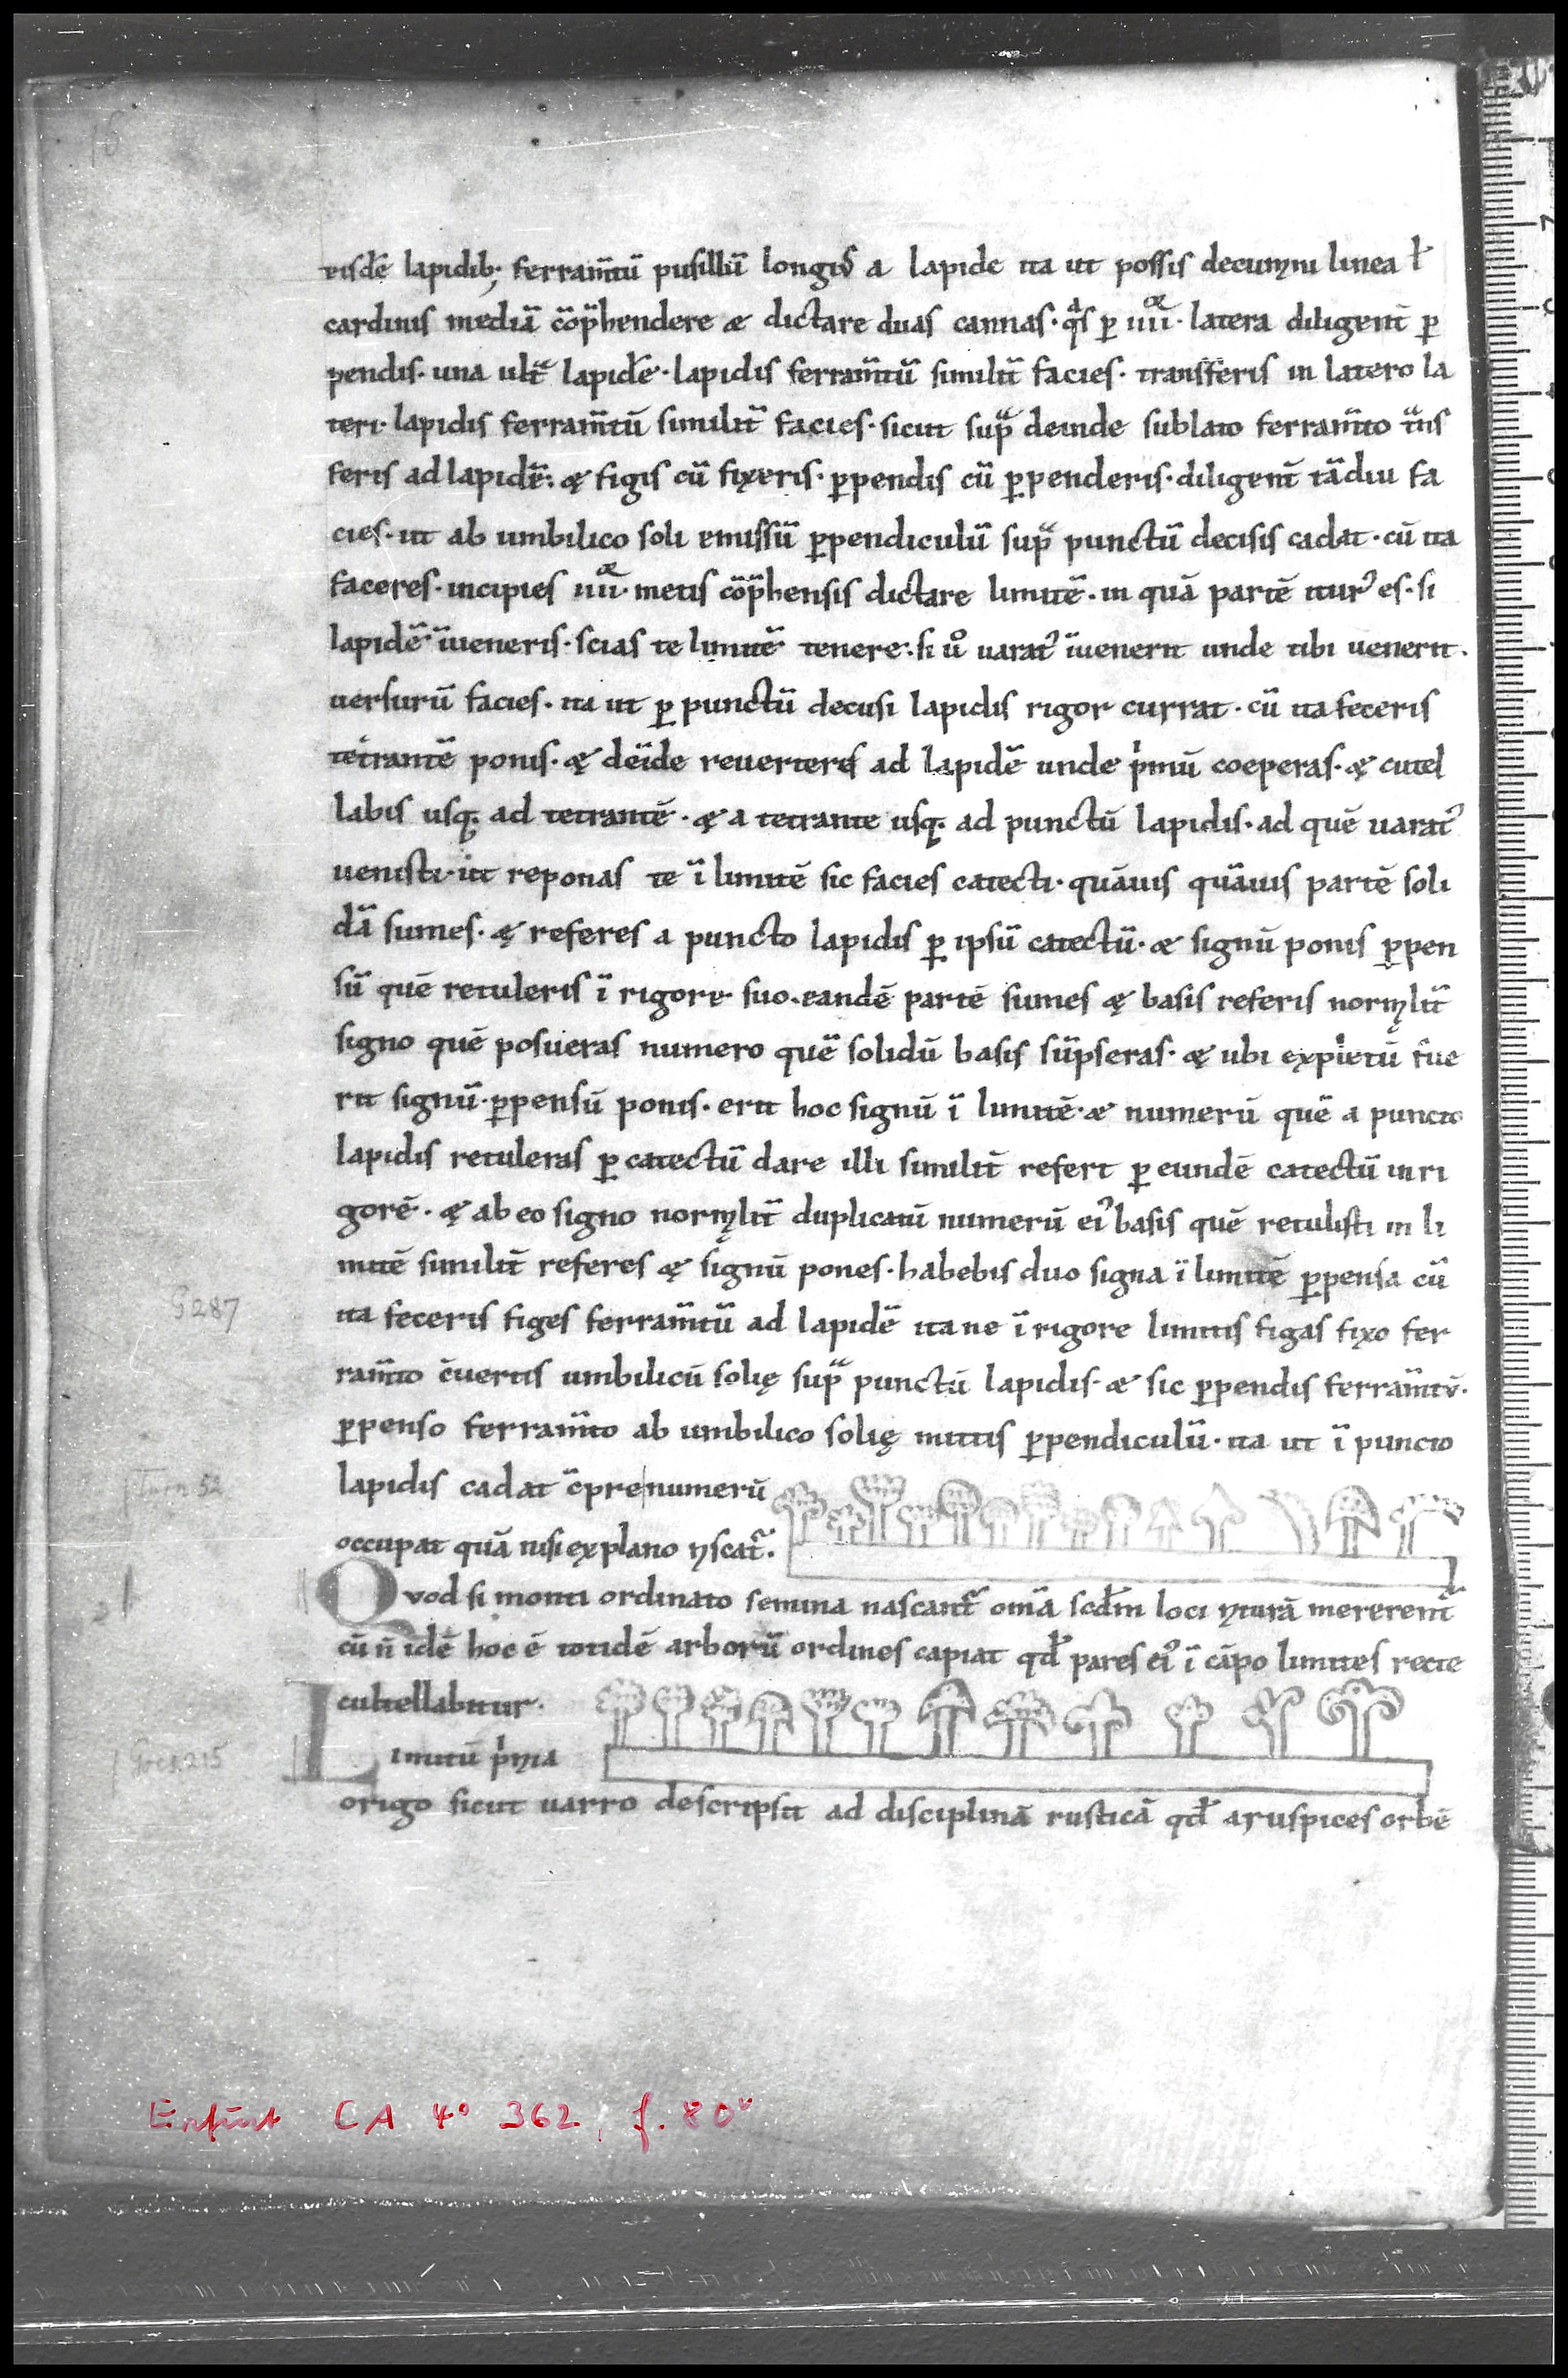 eisdē lapidib; ferram̄tū pusillū longiꝰ a lapide ita ut possis decumni linea ł
cardinis mediā cōp̄hendere & dictare duas cannas · qͣs ꝑ iiii · latera diligent̄ ꝑ
pendis · una ult̄ͣ lapidē · lapidis ferram̄tū similit̄ facies · transferis in latero la
teri · lapidis ferram̄tū similit̄ facies · sicut supͣ deinde sublato ferram̄to tͣns
feris ad lapidē : & figis cū fixeris · ꝑpendis cū ꝑpenderis · diligent̄ tādiu fa
cies · ut ab umbilico soli emissū ꝑpendiculū supͣ punctū decisis cadat · cū ita
faceres · incipies iiii · metis cōp̄hensis dictare limitē · in quā partē iturꝰ es · si
lapidē īueneris · scias te limitē tenere · si ůo uaratꝰ īuenerit unde tibi uenerit ·
uersurū facies · ita ut ꝑ punctū decusi lapidis rigor currat · cū ita feceris
tetrantē ponis · & deīde reuerteris ad lapidē unde pͥmū coeperas · & cutel
labis usq; ad tetrantē · & a tetrante usq; ad punctū lapidis · ad quē uaratꝰ
uenisti · ut reponas te ī limitē sic facies catecti · quāuis quāuis partē soli
dā sumes · & referes a puncto lapidis ꝑ ipsū catectū · & signū ponis ꝑpen
sū quē retuleris ī rigore suo · eandē partē sumes & basis referis normlit̄
signo quē posueras numero quē solidū basis sūpseras · & ubi expletū fue
rit signū · ꝑpensū ponis · erit hoc signū ī limitē · & numerū quē a puncto
lapidis retuleras ꝑ catectū dare illi similit̄ refert ꝑ eundē catectū in ri
gorē · & ab eo signo normlit̄ duplicatū numerū eiꝰ basis quē retulisti in li
mitē similit̄ referes & signū pones · habebis duo signa ī limitē ꝑpensa cū
ita feceris figes ferram̄tū ad lapidē ita ne ī rigore limitis figas fixo fer
G 287
ram̄to c̄uertis umbilicū solię supͣ punctū lapidis · & sic ꝑpendis ferram̄tū ·
ꝑpenso ferram̄to ab umbilico solię mittis ꝑpendiculū · ita ut ī puncto
lapidis cadat c̄pre numerū
52
occupat quā nisi explano nscat̄ᷓ ·
Quod si monti ordinato semina nascant̄ omā scd̄m loci nturā mererent̄
cū n̄ idē hoc ē totidē arborū ordines capiat qd̄ pares eiꝰ ī cāpo limites recte
cultellabitur ·
Limitū pͥma
215
origo sicut uarro descripsit ad disciplinā rusticā qd̄ aruspices orbē
Erfurt CA 4° 362, f. 80v